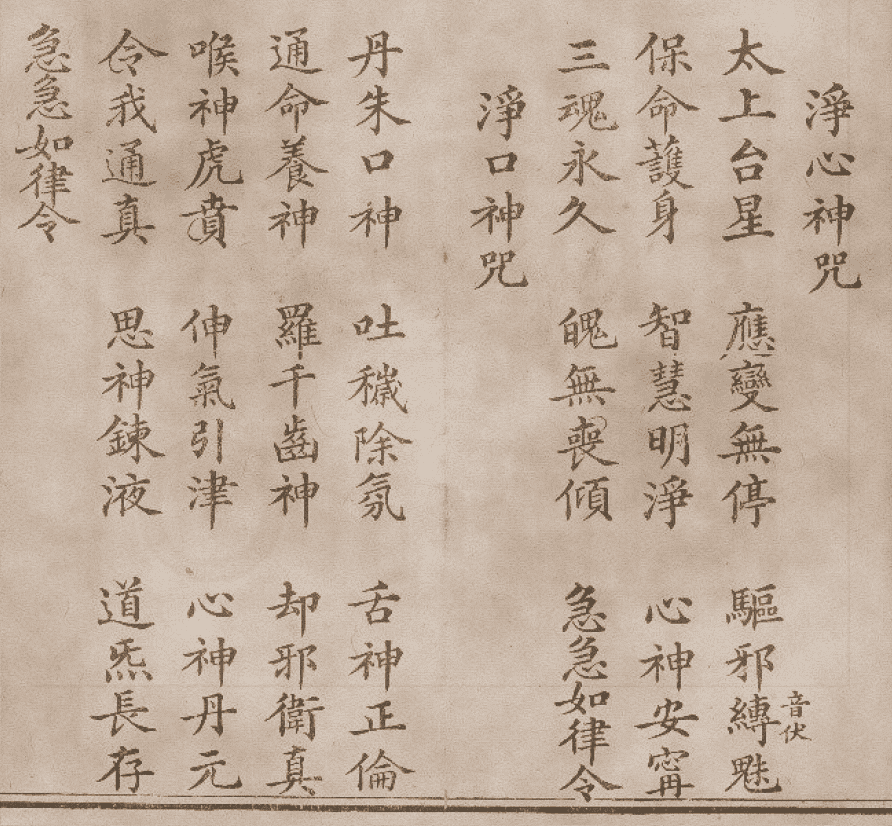 淨心神咒
太上台星 應變無停 驅邪縛魅 音伏
保命護身 智慧明淨 心神安寧
三魂永久 魄無喪傾 急急如律令
淨口神咒
丹朱口神 吐穢除氛 舌神正倫
通命養神 羅千齒神 却邪衛真
喉神虎賁 伸氣引津 心神丹元
令我通真 思神鍊液 道炁長存
急急如律令